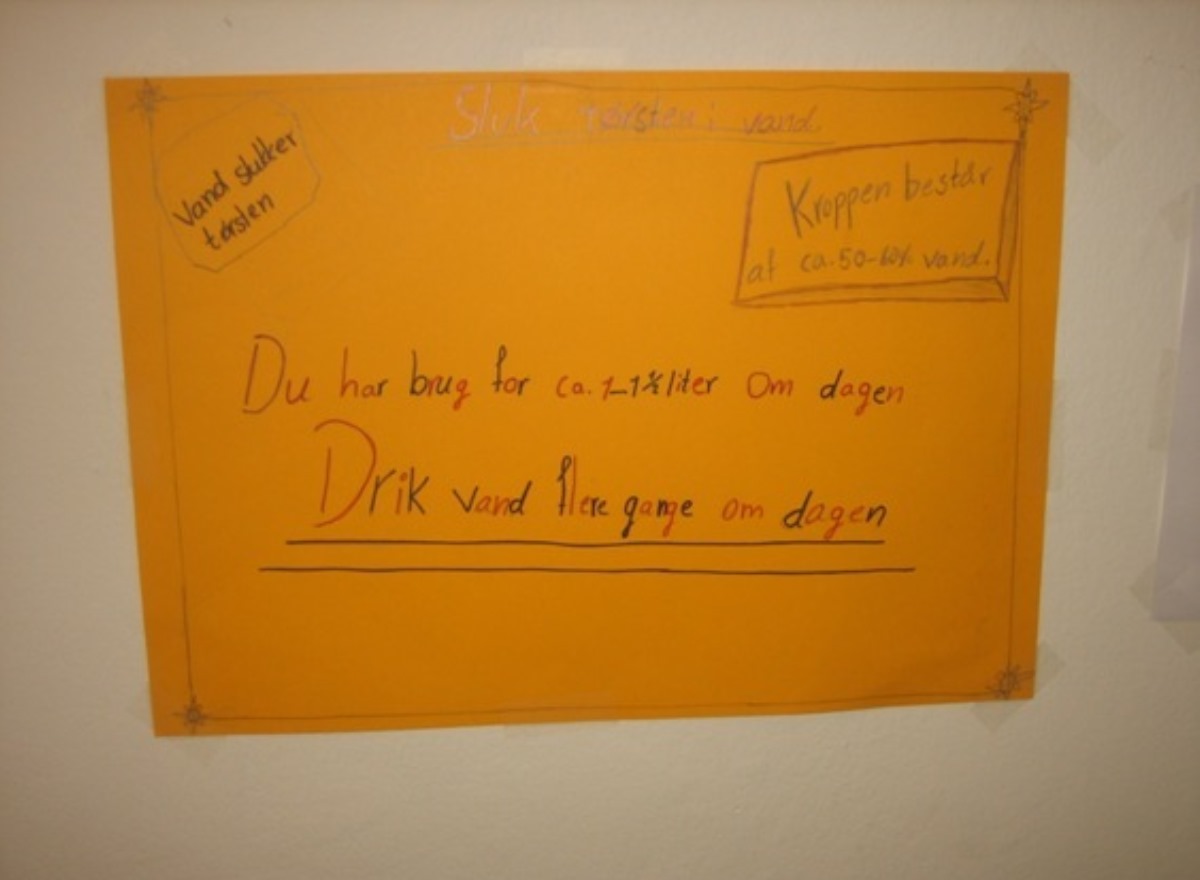 Sluk tørsten i vand.
Vand slukker
tørsten
Kroppen består
af ca. 50-60% vand.
Du har brug for ca. 1-1½ liter Om dagen
Drik vand flere gange om dagen